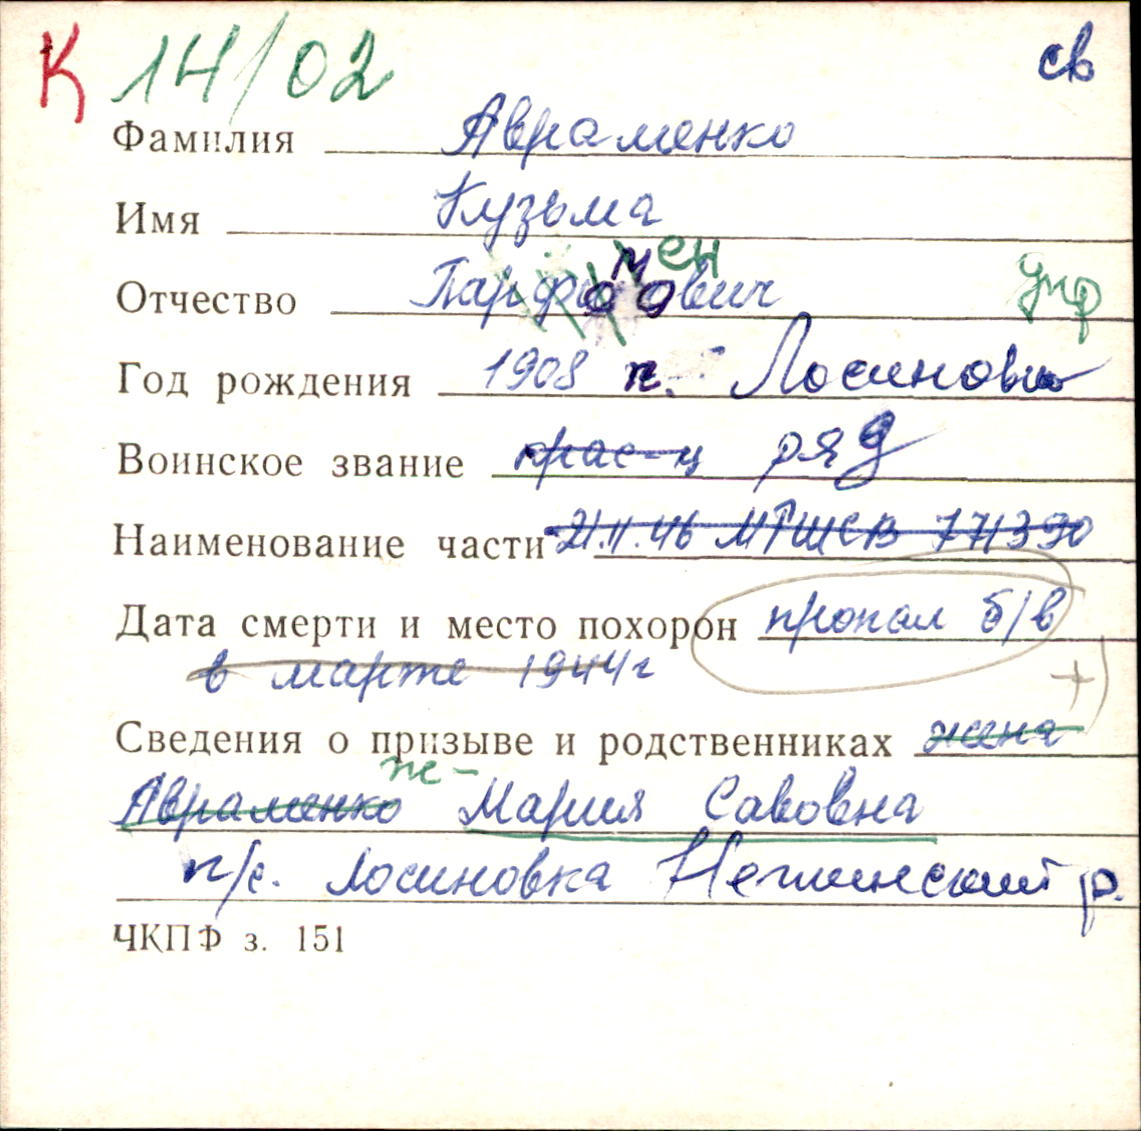 К 14/02 св
Фамилия Авраменко
Имя Кузьма
мен
Отчество Парфиович упр
Год рождения 1908 п. Лосиновка
Воинское звание крас-ц ряд
Наименование части 21.II.46 МРШСВ 771390
Дата смерти и место похорон пропал б/в
в марте 1944г +)
Сведения о призыве и родственниках жена
ж-
Авраменко Мария Савовна
п/с. Лосиновка Нежинский р.
ЧКПФ з. 151